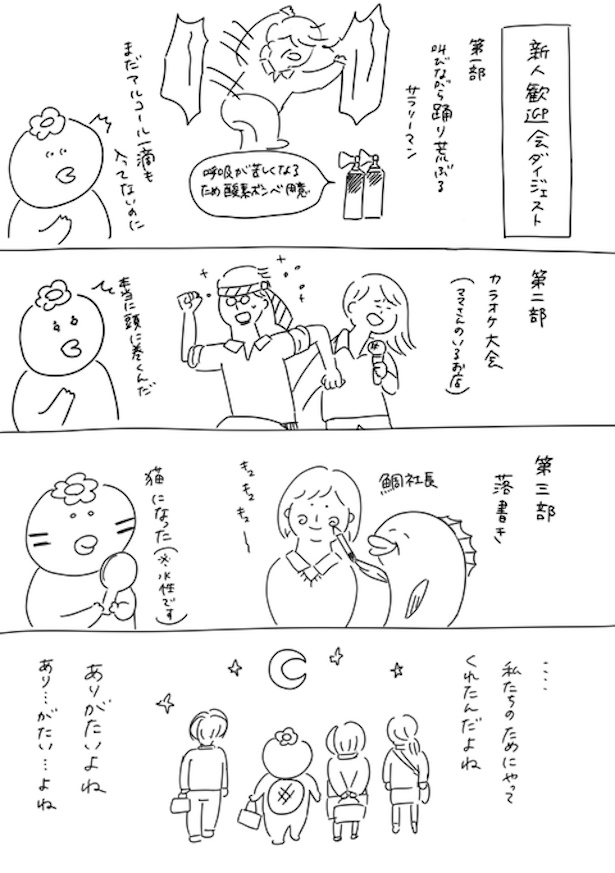 新人歓迎会ダイジェスト
第一部
叫びながら踊り荒ぶる
サラリーマン
呼吸が苦しくなる
ため酸素ボンベ用意
まだアルコール一滴も
入ってないのに
第二部
カラオケ大会
(ママさんのいるお店)
本当に頭に巻くんだ
第三部
落書き
鯛社長
キュキュキュ〜
猫になった(※水性です)
....
私たちのためにやって
くれたんだよね
ありがたいよね
あり...がたい...よね